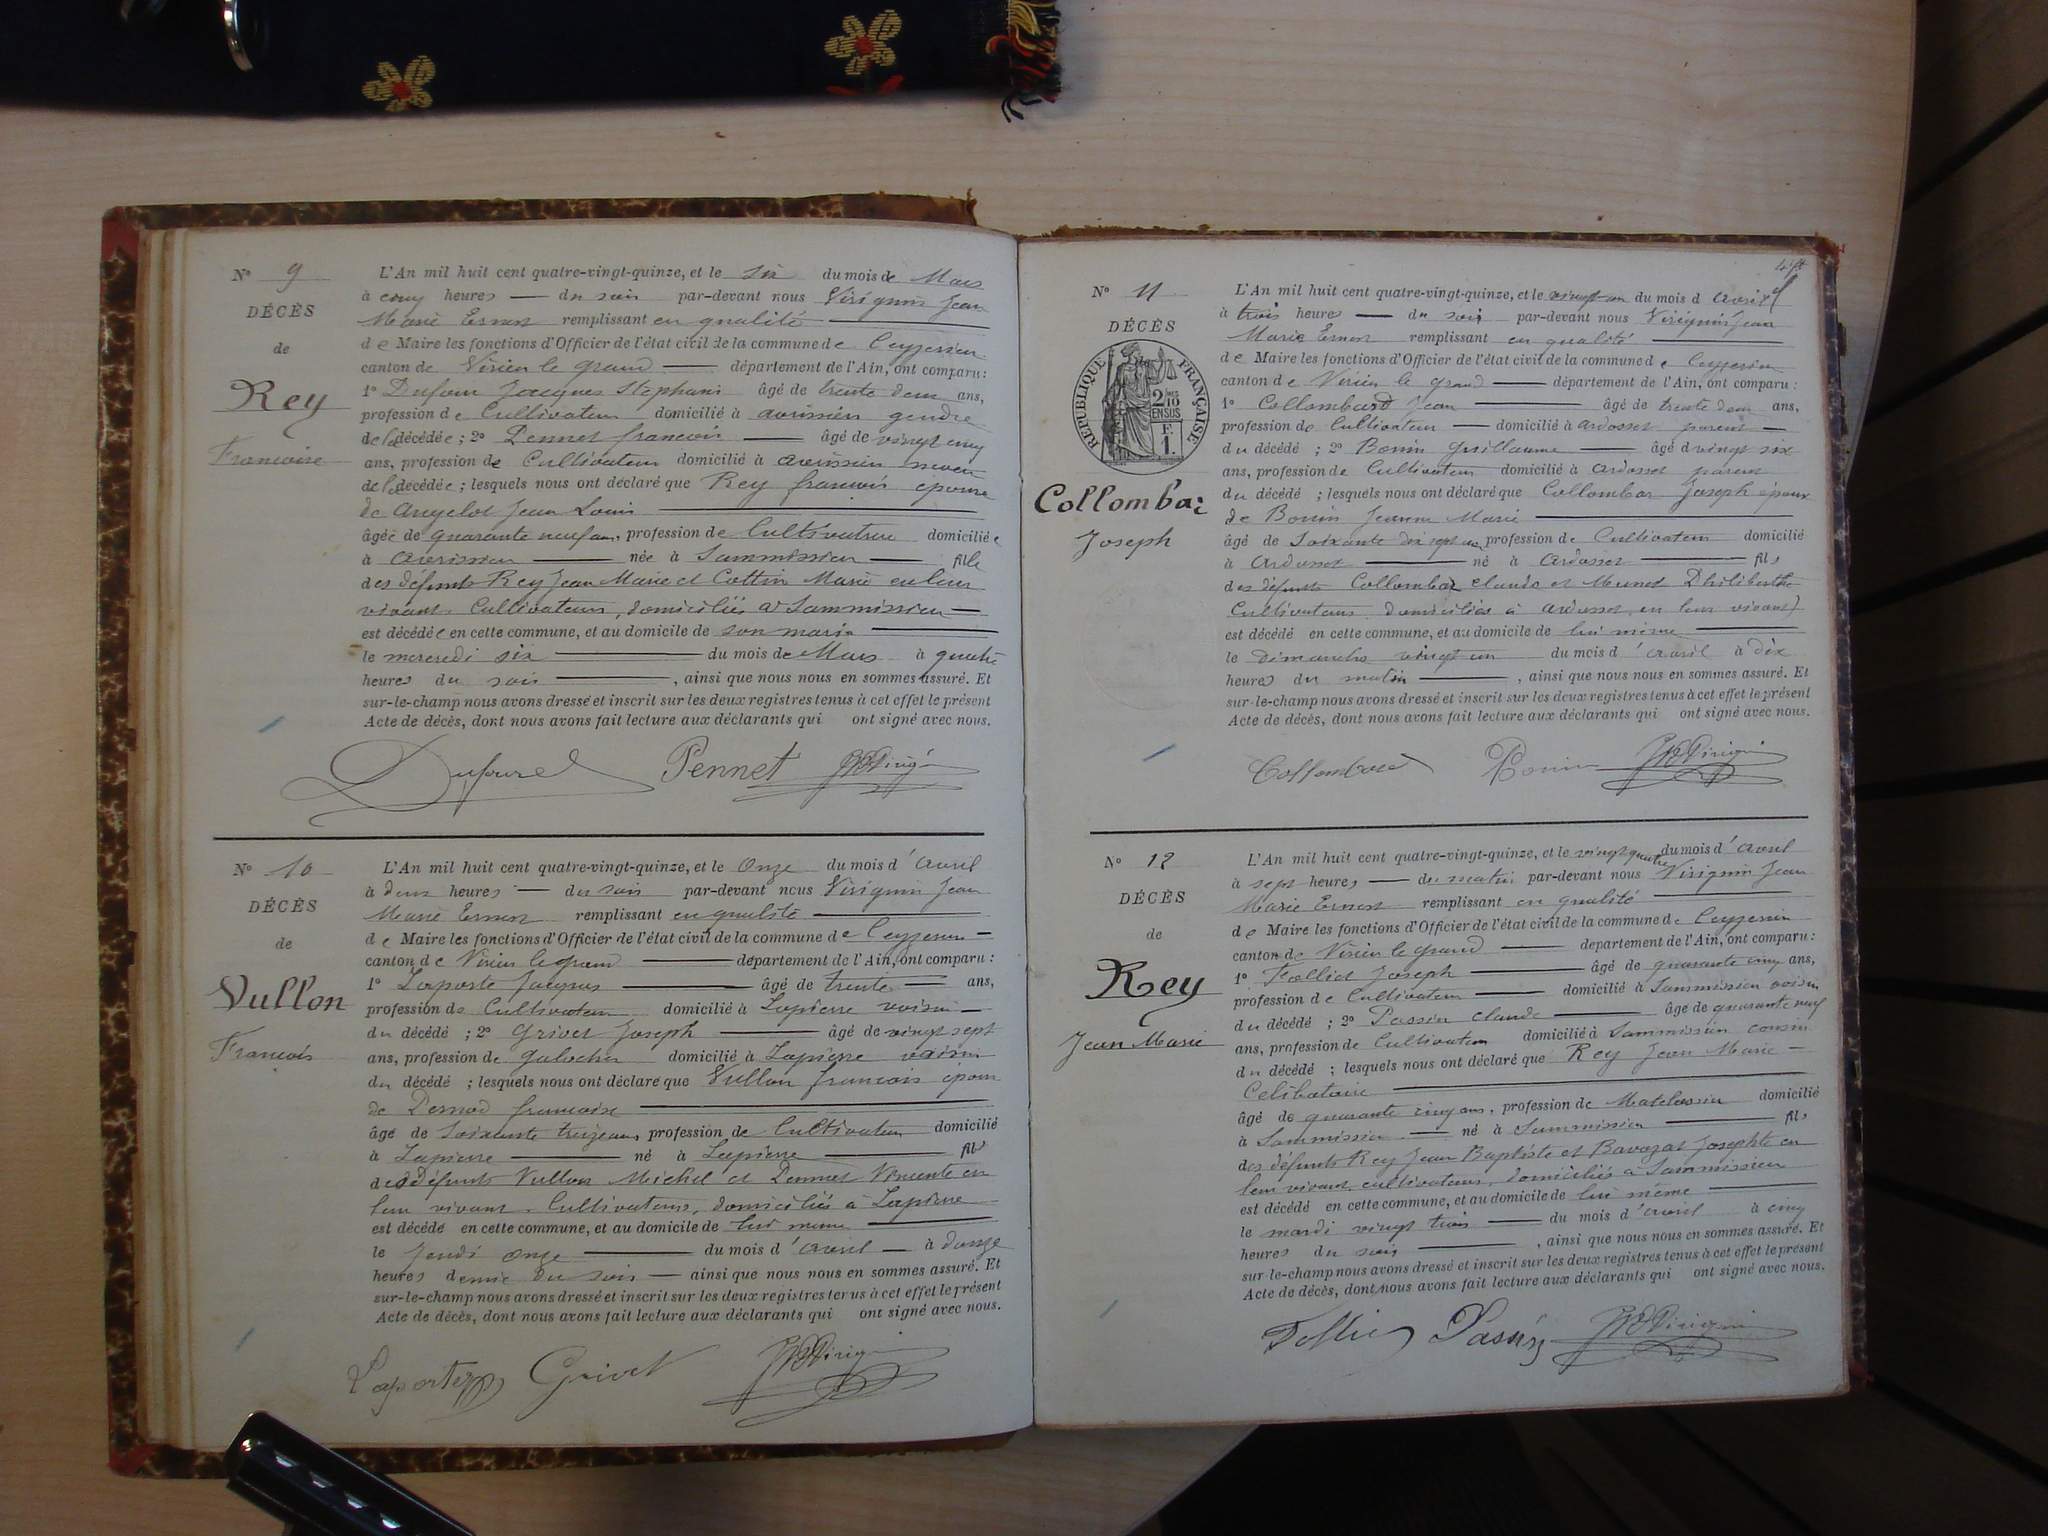 N° 9
DÉCÈS
de
Rey
Francoise
L'An mil huit cent quatre-vingt-quinze, et le six du mois de Mars
à cinq heures du soir par-devant nous Virignin Jean
Marie Ernest remplissant en qualité
de Maire les fonctions d'Officier de l'état civil de la commune de Ceyzerieu
canton de Virieu le grand département de l'Ain, ont comparu :
1° Dufour Jacques Stéphanis âgé de trente deux ans,
profession de Cultivateur domicilié à avrissieu gendre
de la décédée ; 2° Pennet francois âgé de vingt cinq
ans, profession de Cultivateur domicilié à avrissieu neveu
de la décédée ; lesquels nous ont déclaré que Rey francoise épouse
de Angelot Jean Louis
âgée de quarante neuf ans, profession de Cultivatrice domiciliée
à avrissieu née à Sammissieu fille
des défunts Rey Jean Marie et Cottin Marie en leur
vivant Cultivateurs, domiciliés à Sammissieu
est décédée en cette commune, et au domicile de son mari
le mercredi six du mois de Mars à quatre
heures du soir , ainsi que nous nous en sommes assuré. Et
sur-le-champ nous avons dressé et inscrit sur les deux registres tenus à cet effet le présent
Acte de décès, dont nous avons fait lecture aux déclarants qui ont signé avec nous.
Dufour Pennet Virignin
N° 10
DÉCÈS
de
Vullon
Francois
L'An mil huit cent quatre-vingt-quinze, et le Onze du mois d'avril
à deux heures du soir par-devant nous Virignin Jean
Marie Ernest remplissant en qualité
de Maire les fonctions d'Officier de l'état civil de la commune de Ceyzerieu
canton de Virieu le grand département de l'Ain, ont comparu :
1° Laporte Jacques âgé de trente ans,
profession de Cultivateur domicilié à Lapierre voisin
du décédé ; 2° Grivet Joseph âgé de vingt sept
ans, profession de galocher domicilié à Lapierre voisin
du décédé ; lesquels nous ont déclaré que Vullon francois époux
de francoise
âgé de soixante treize ans, profession de Cultivateur domicilié
à Lapierre né à Lapierre fils
des défunts Vullon Michel et Pennet Vincente en
leur vivant Cultivateurs, domiciliés à Lapierre
est décédé en cette commune, et au domicile de lui même
le Jeudi onze du mois d'avril à douze
heures demie du soir ainsi que nous nous en sommes assuré. Et
sur-le-champ nous avons dressé et inscrit sur les deux registres tenus à cet effet le présent
Acte de décès, dont nous avons fait lecture aux déclarants qui ont signé avec nous.
Laporte Grivet Virignin
N° 11
DÉCÈS
RÉPUBLIQUE FRANÇAISE
2/10
EN SUS
F.
1.
Collombaz
Joseph
L'An mil huit cent quatre-vingt-quinze, et le vingt un du mois d'avril
à trois heures du soir par-devant nous Virignin Jean
Marie Ernest remplissant en qualité
de Maire les fonctions d'Officier de l'état civil de la commune de Ceyzerieu
canton de Virieu le grand département de l'Ain, ont comparu :
1° Collombard Jean âgé de trente deux ans,
profession de Cultivateur domicilié à ardosset parent
du décédé ; 2° Bonin guillaume âgé de vingt six
ans, profession de Cultivateur domicilié à ardosset parent
du décédé ; lesquels nous ont déclaré que Collombaz Joseph époux
de Bonin Jeanne Marie
âgé de soixante dix sept ans profession de Cultivateur domicilié
à ardosset né à ardosset fils
des défunts Collombaz claude et Meunet Philiberthe
Cultivateurs domiciliés à ardosset en leur vivant
est décédé en cette commune, et au domicile de lui même
le dimanche vingt un du mois d'avril à dix
heures du matin , ainsi que nous nous en sommes assuré. Et
sur-le-champ nous avons dressé et inscrit sur les deux registres tenus à cet effet le présent
Acte de décès, dont nous avons fait lecture aux déclarants qui ont signé avec nous.
Collombard Bonin Virignin
N° 12
DÉCÈS
de
Rey
Jean Marie
L'An mil huit cent quatre-vingt-quinze, et le vingt quatre du mois d'avril
à sept heures du matin par-devant nous Virignin Jean
Marie Ernest remplissant en qualité
de Maire les fonctions d'Officier de l'état civil de la commune de Ceyzerieu
canton de Virieu le grand département de l'Ain, ont comparu :
1° Folliet Joseph âgé de quarante cinq ans,
profession de Cultivateur domicilié à Sammissieu voisin
du décédé ; 2° Passin claude âgé de quarante neuf
ans, profession de Cultivateur domicilié à Sammissieu cousin
du décédé ; lesquels nous ont déclaré que Rey Jean Marie
Celibataire
âgé de quarante cinq ans, profession de Matelassier domicilié
à Sammissieu né à Sammissieu fils
des défunts Rey Jean Baptiste et Bavozat Josephte en
leur vivant cultivateurs, domiciliés à Sammissieu
est décédé en cette commune, et au domicile de lui même
le mardi vingt trois du mois d'avril à cinq
heures du soir , ainsi que nous nous en sommes assuré. Et
sur-le-champ nous avons dressé et inscrit sur les deux registres tenus à cet effet le présent
Acte de décès, dont nous avons fait lecture aux déclarants qui ont signé avec nous.
Folliet Passin Virignin